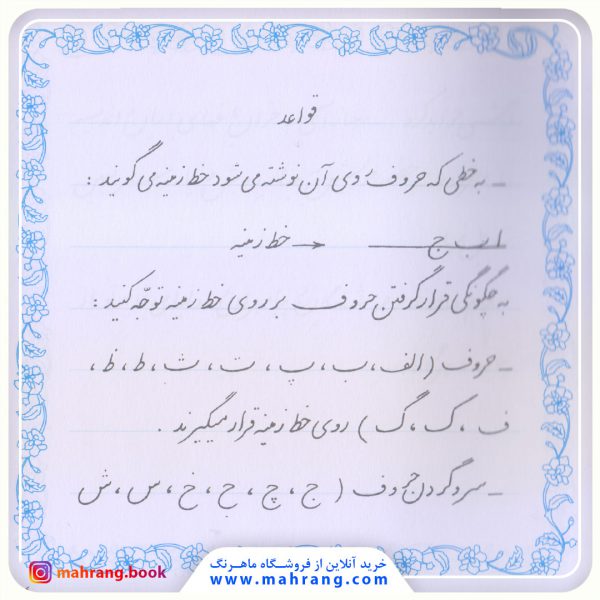 قواعد
- به خطی که حروف روی آن نوشته می شود خط زمینه می گویند :
ا ب ج → خط زمینه
به چگونگی قرار گرفتن حروف بر روی خط زمینه توجّه کنید :
- حروف ( الف ، ب ، پ ، ت ، ث ، ط ، ظ ،
ف ، ک ، گ ) روی خط زمینه قرار میگیرند .
- سر و گردن حروف ( ج ، چ ، ح ، خ ، س ، ش
mahrang.book
خرید آنلاین از فروشگاه ماهرنگ
www.mahrang.com